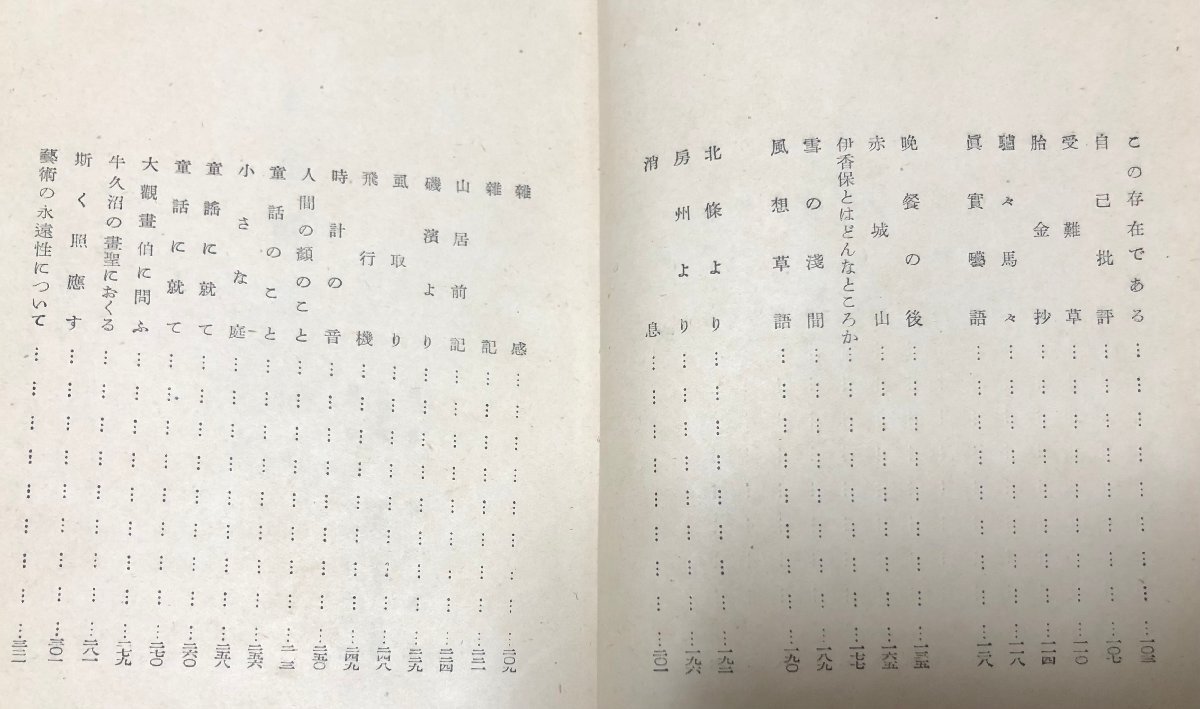 この存在である………………………一〇三
自己批評………………………一〇七
受難草………………………一一〇
胎金抄………………………一一四
驢々馬々………………………一一八
眞實囈語………………………一二八
晩餐の後………………………一三五
赤城山………………………一六五
伊香保とはどんなところか………………………一七七
雪の淺間………………………一八九
風想草語………………………一九〇
北條より………………………一九二
房州より………………………一九六
消息………………………二〇一
雜感………………………二〇九
雜記………………………二二一
山居前記………………………二二四
磯濱より………………………二二九
虱取り………………………二四八
飛行機………………………二四九
時計の音………………………二五〇
人間の顏のこと………………………
童話のこと………………………二五六
小さな庭………………………二五八
童謠に就て………………………二六〇
童話に就て………………………二七〇
大觀畫伯に問ふ………………………二七九
牛久沼の畫聖におくる………………………二八一
斯く照應す………………………三〇一
藝術の永遠性について………………………三二一